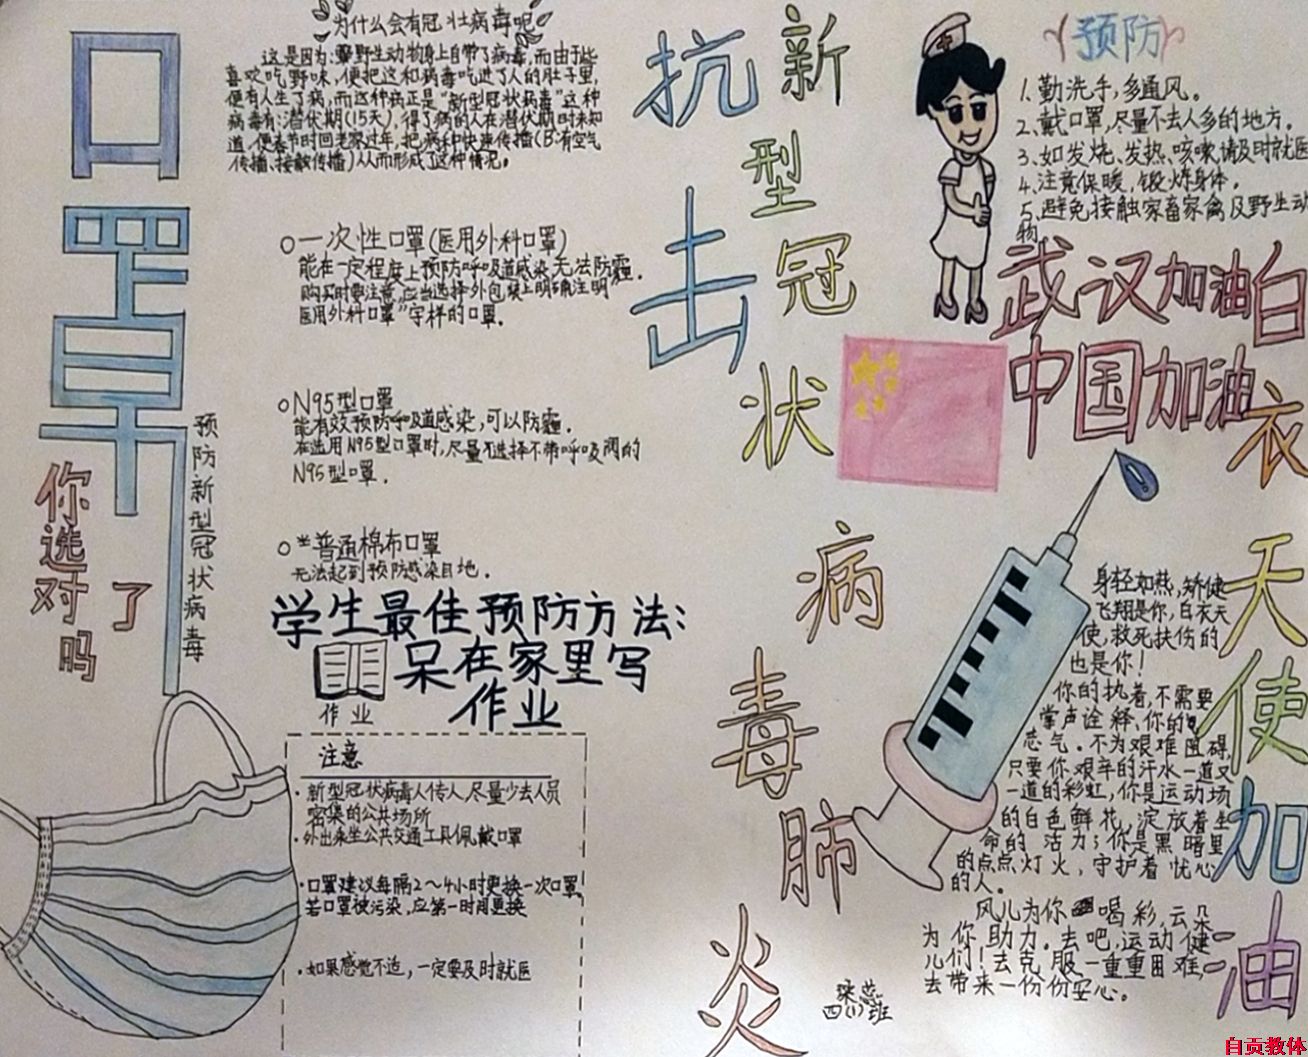 口罩
你选对了吗
预防新型冠状病毒
为什么会有冠壮病毒呢
这是因为:野生动物身上自带了病毒,而由于些
喜欢吃野味,便把这种病毒吃进了人的肚子里,
便有人生了病,而这种病正是“新型冠状病毒”这种
病毒有:潜伏期(15天),得了病的人在潜伏期时未知
道,便春节时回老家过年,把病种快速传播(B:有空气
传播、接触传播)从而形成了这种情况。
一次性口罩(医用外科口罩)
能在一定程度上预防呼吸道感染无法防霾.
购买时要注意,应当选择外包装上明确注明
医用外科口罩”字样的口罩.
N95型口罩
能有效预防呼吸道感染,可以防霾.
在选用N95型口罩时,尽量选择不带呼吸阀的
N95型口罩.
普通棉布口罩
无法起到预防感染目地.
学生最佳预防方法:
呆在家里写
作业
作业
注意
·新型冠状病毒人传人,尽量少去人员
密集的公共场所
·外出乘坐公共交通工具佩戴口罩
·口罩建议每隔2~4小时更换一次口罩,
若口罩被污染,应第一时间更换
·如果感觉不适,一定要及时就医
抗击
新型冠状病毒肺炎
预防
1.勤洗手,多通风。
2、戴口罩,尽量不去人多的地方.
3、如发烧、发热、咳嗽,请及时就医
4、注意保暖,锻炼身体.
5、避免接触家畜家禽及野生动
物
武汉加油
中国加油
白衣天使加油
身轻如燕,矫健
飞翔是你,白衣天
使,救死扶伤的
也是你!
你的执着,不需要
掌声诠释,你的
态气.不为艰难阻碍,
只要你艰辛的汗水一道又
一道的彩虹,你是运动场
的白色鲜花,淀放着生
命的活力;你是黑暗里
的点点灯火,守护着忧心
的人.
风儿为你喝彩,云朵
为你助力.去吧,运动健
儿们!去克服一重重困难,
去带来一份份安心。
四(1)班
自贡教体